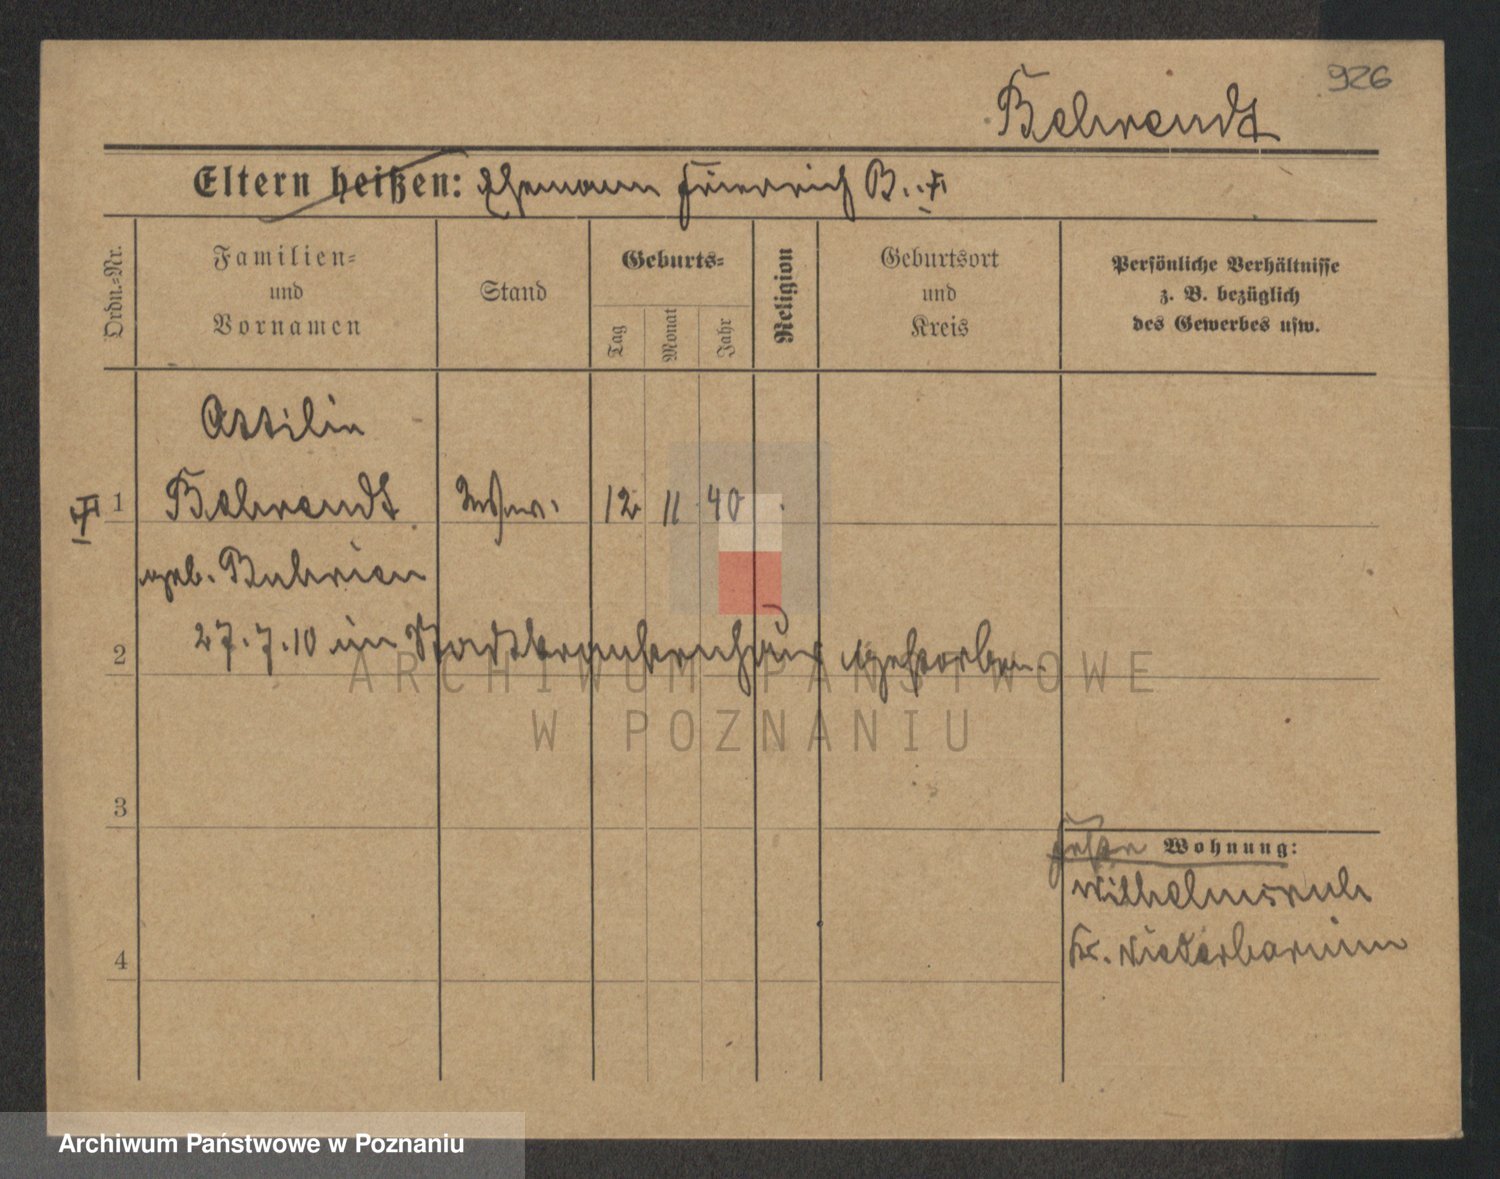 926
Behrendt
Eltern heißen: Ehemann Friedrich B.
Ordn.-Nr.
Familien-
und
Vornamen
Stand
Geburts-
Tag
Monat
Jahr
Religion
Geburtsort
und
Kreis
Persönliche Verhältnisse
z. B. bezüglich
des Gewerbes usw.
Ottilie
1 Behrendt 12 11 40
geb.
27.7.10 im Stadtkrankenhaus gestorben.
2
3
4
Wohnung:
Wilhelmsruh
Kr. Niederbarnim
ARCHIWUM PAŃSTWOWE
W POZNANIU
Archiwum Państwowe w Poznaniu